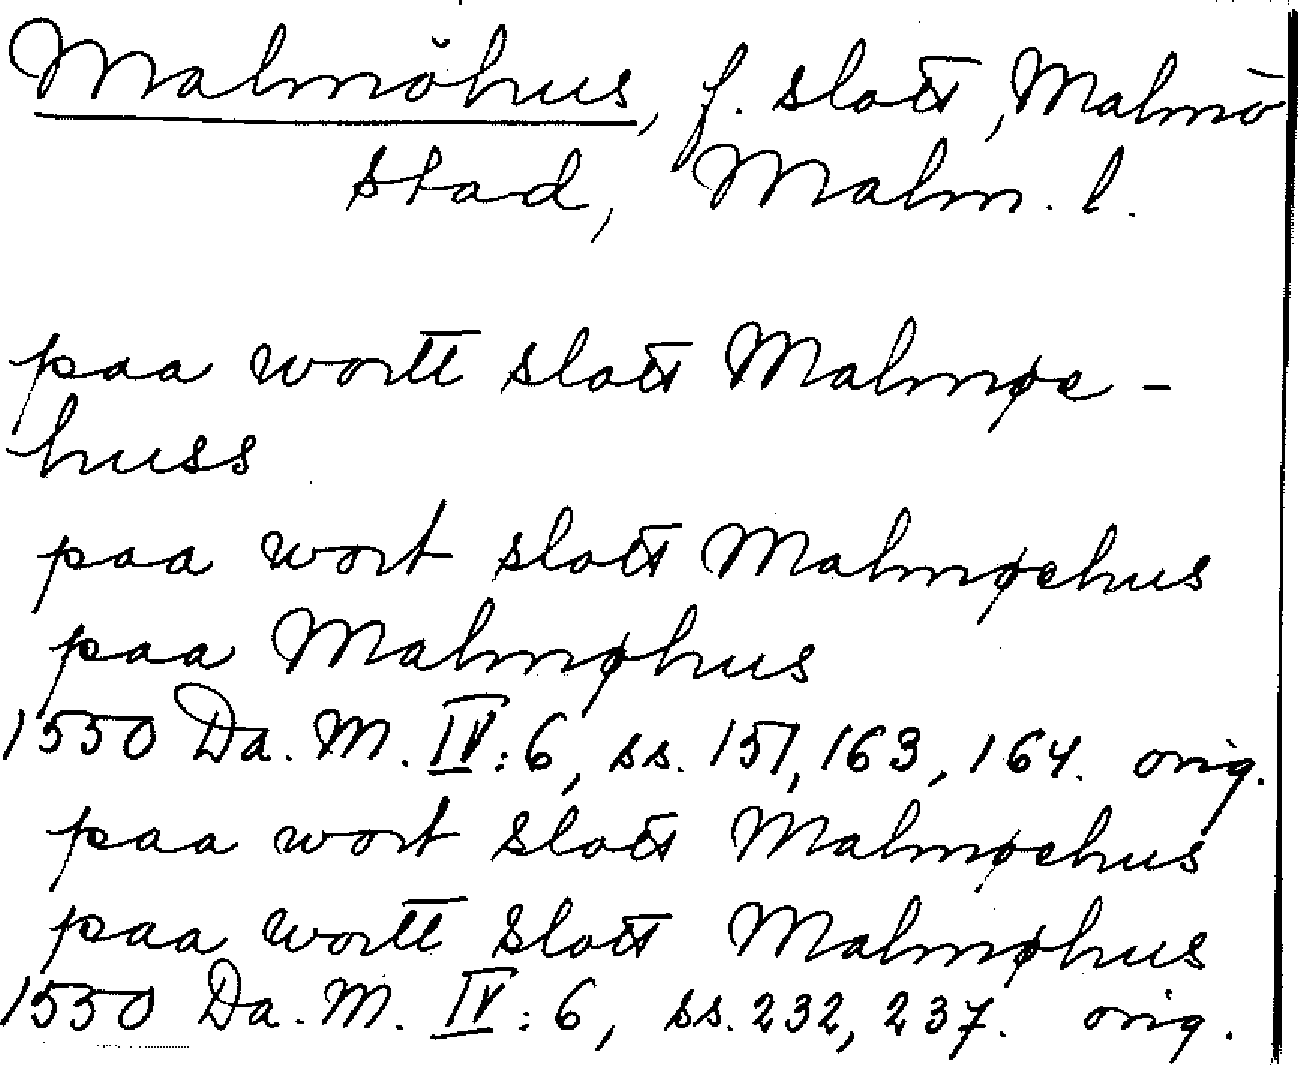 Malmöhus, f. slott, Malmö
stad, Malm. l.
paa wortt slott Malmøe-
huss
paa wort slott Malmøehus
paa Malmøhus
1550 Da. M. IV:6, ss. 151, 163, 164. orig.
paa wort slott Malmøehus
paa wortt slott Malmøhus
1550 Da. M. IV:6, ss. 232, 237. orig.